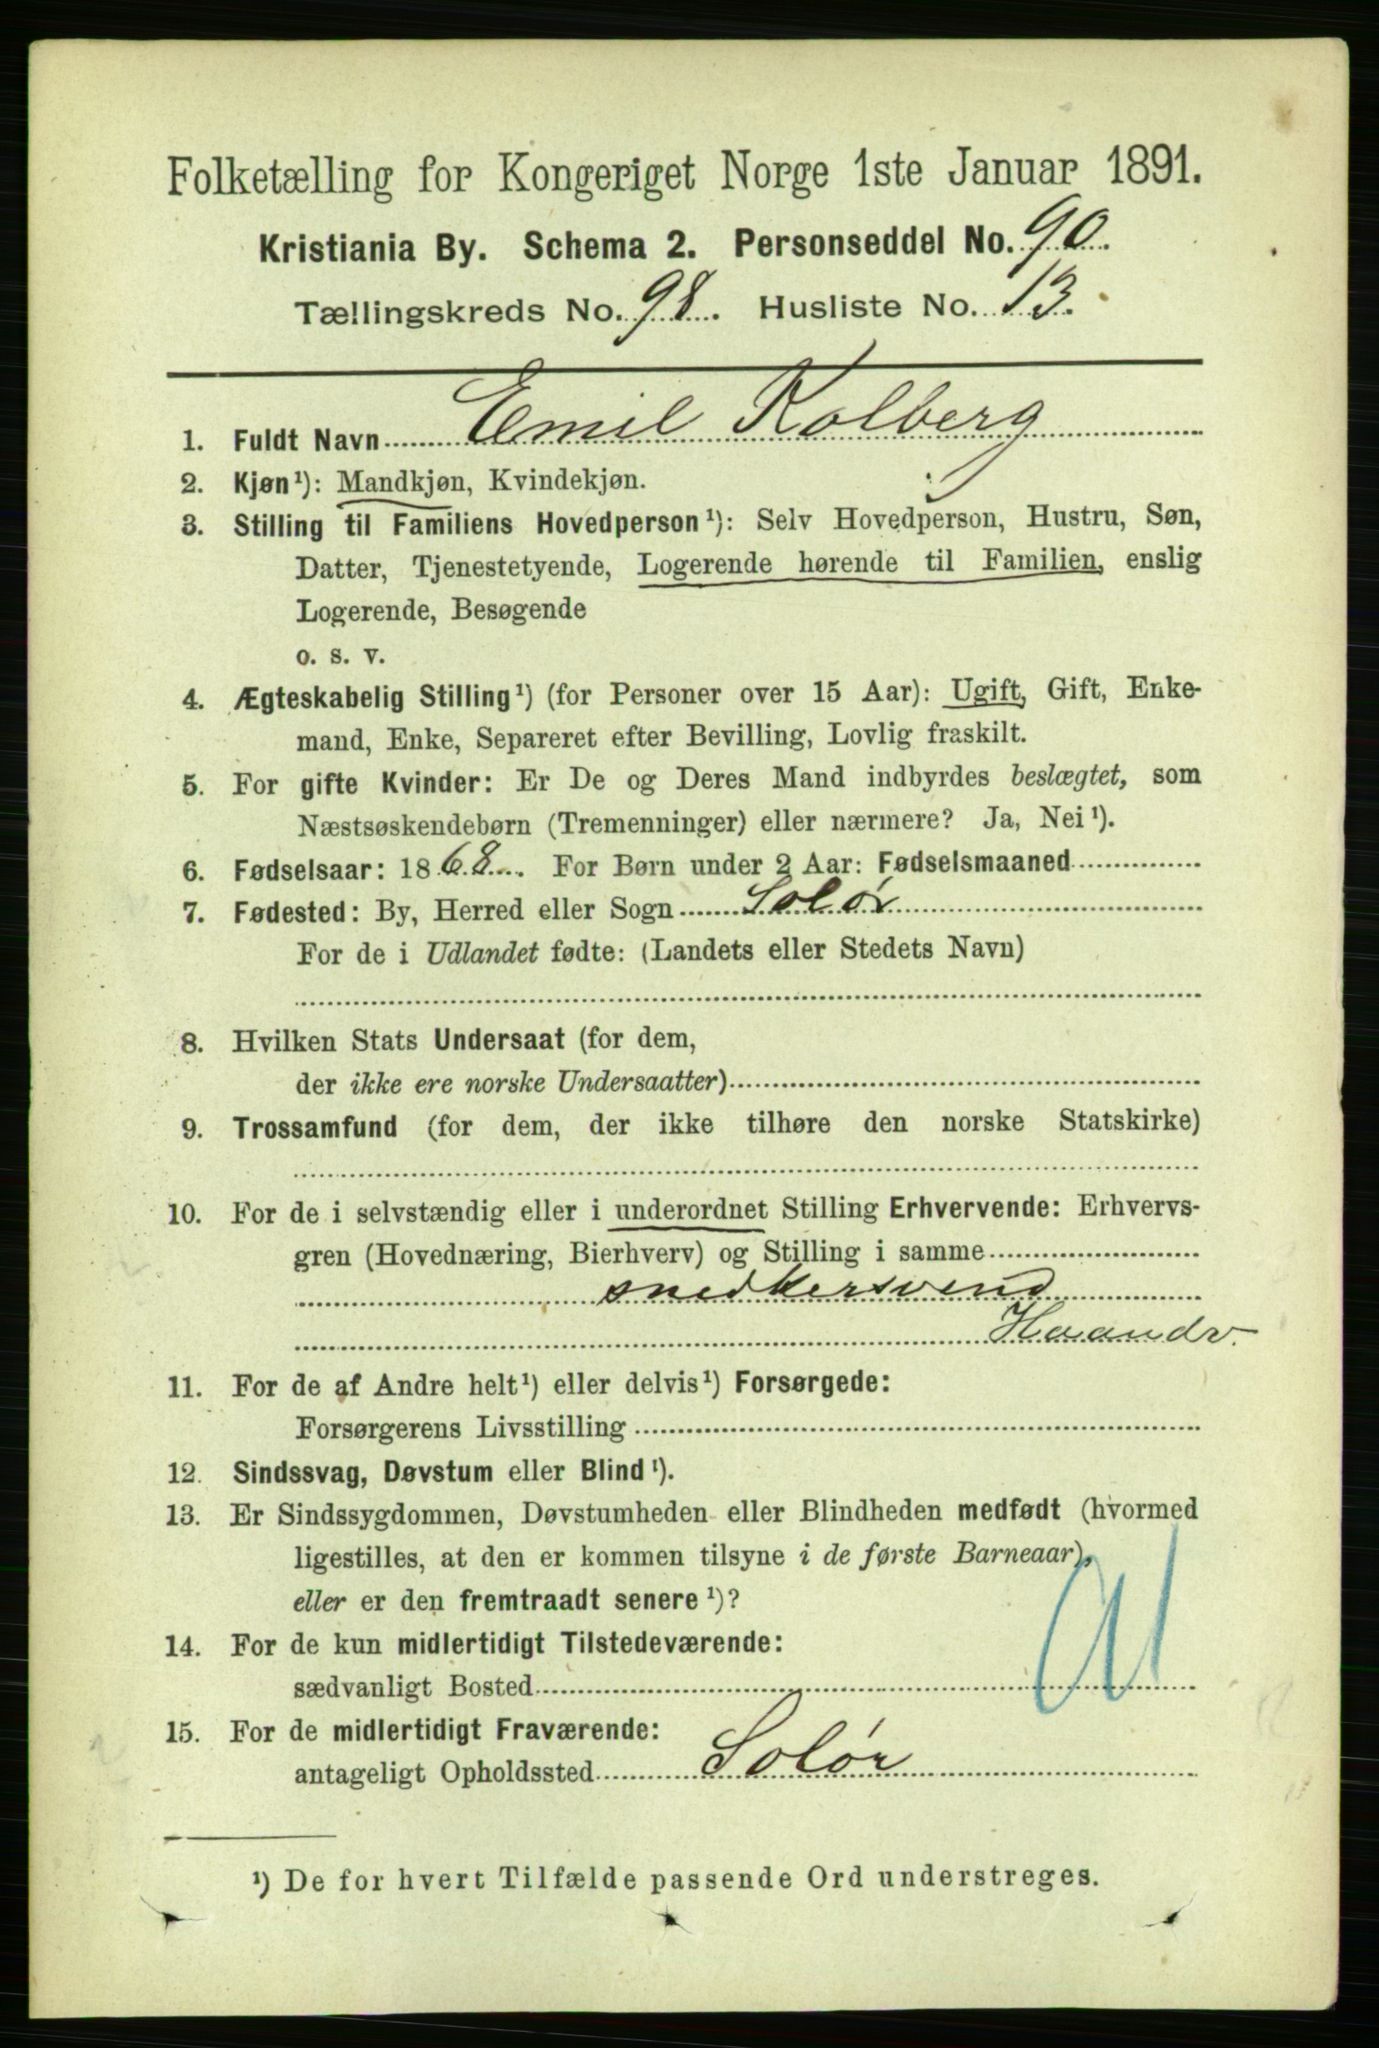 Folketælling for Kongeriget Norge 1ste Januar 1891.
Kristiania By. Schema 2. Personseddel No. 90.
Tællingskreds No. 98. Husliste No. 13.
1. Fuldt Navn Emil Kolberg
2. Kjøn¹): Mandkjøn, Kvindekjøn.
3. Stilling til Familiens Hovedperson¹): Selv Hovedperson, Hustru, Søn,
Datter, Tjenestetyende, Logerende hørende til Familien, enslig
Logerende, Besøgende
o. s. v.
4. Ægteskabelig Stilling¹) (for Personer over 15 Aar): Ugift, Gift, Enke-
mand, Enke, Separeret efter Bevilling, Lovlig fraskilt.
5. For gifte Kvinder: Er De og Deres Mand indbyrdes beslægtet, som
Næstsøskendebørn (Tremenninger) eller nærmere? Ja, Nei¹).
6. Fødselsaar: 1868. For Børn under 2 Aar: Fødselsmaaned
7. Fødested: By, Herred eller Sogn Solør
For de i Udlandet fødte: (Landets eller Stedets Navn)
8. Hvilken Stats Undersaat (for dem,
der ikke ere norske Undersaatter)
9. Trossamfund (for dem, der ikke tilhøre den norske Statskirke)
10. For de i selvstændig eller i underordnet Stilling Erhvervende: Erhvervs-
gren (Hovednæring, Bierhverv) og Stilling i samme
snedkersvend
Haandv.
11. For de af Andre helt¹) eller delvis¹) Forsørgede:
Forsørgerens Livsstilling
12. Sindssvag, Døvstum eller Blind¹).
13. Er Sindssygdommen, Døvstumheden eller Blindheden medfødt (hvormed
ligestilles, at den er kommen tilsyne i de første Barneaar),
eller er den fremtraadt senere¹)?
14. For de kun midlertidigt Tilstedeværende:
sædvanligt Bosted
91
15. For de midlertidigt Fraværende:
antageligt Opholdssted Solør
¹) De for hvert Tilfælde passende Ord understreges.